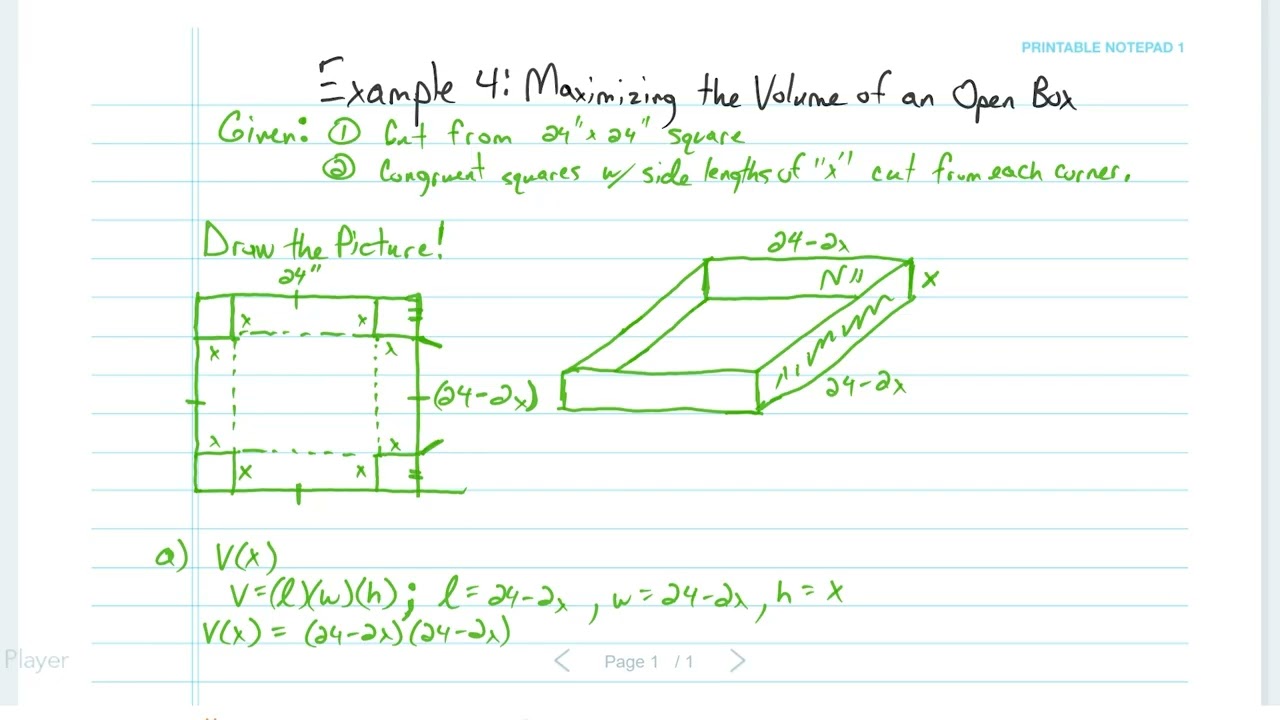 PRINTABLE NOTEPAD 1
Example 4: Maximizing the Volume of an Open Box
Given: ① Cut from 24" x 24" square
② Congruent squares w/ side lengths of "x" cut from each corner.
Draw the Picture!
24"
x x
x x
(24-2x)
x x
x x
24-2x
x
24-2x
a) V(x)
V=(l)(w)(h); l=24-2x, w=24-2x, h=x
V(x) = (24-2x)(24-2x)
Player
Page 1 / 1